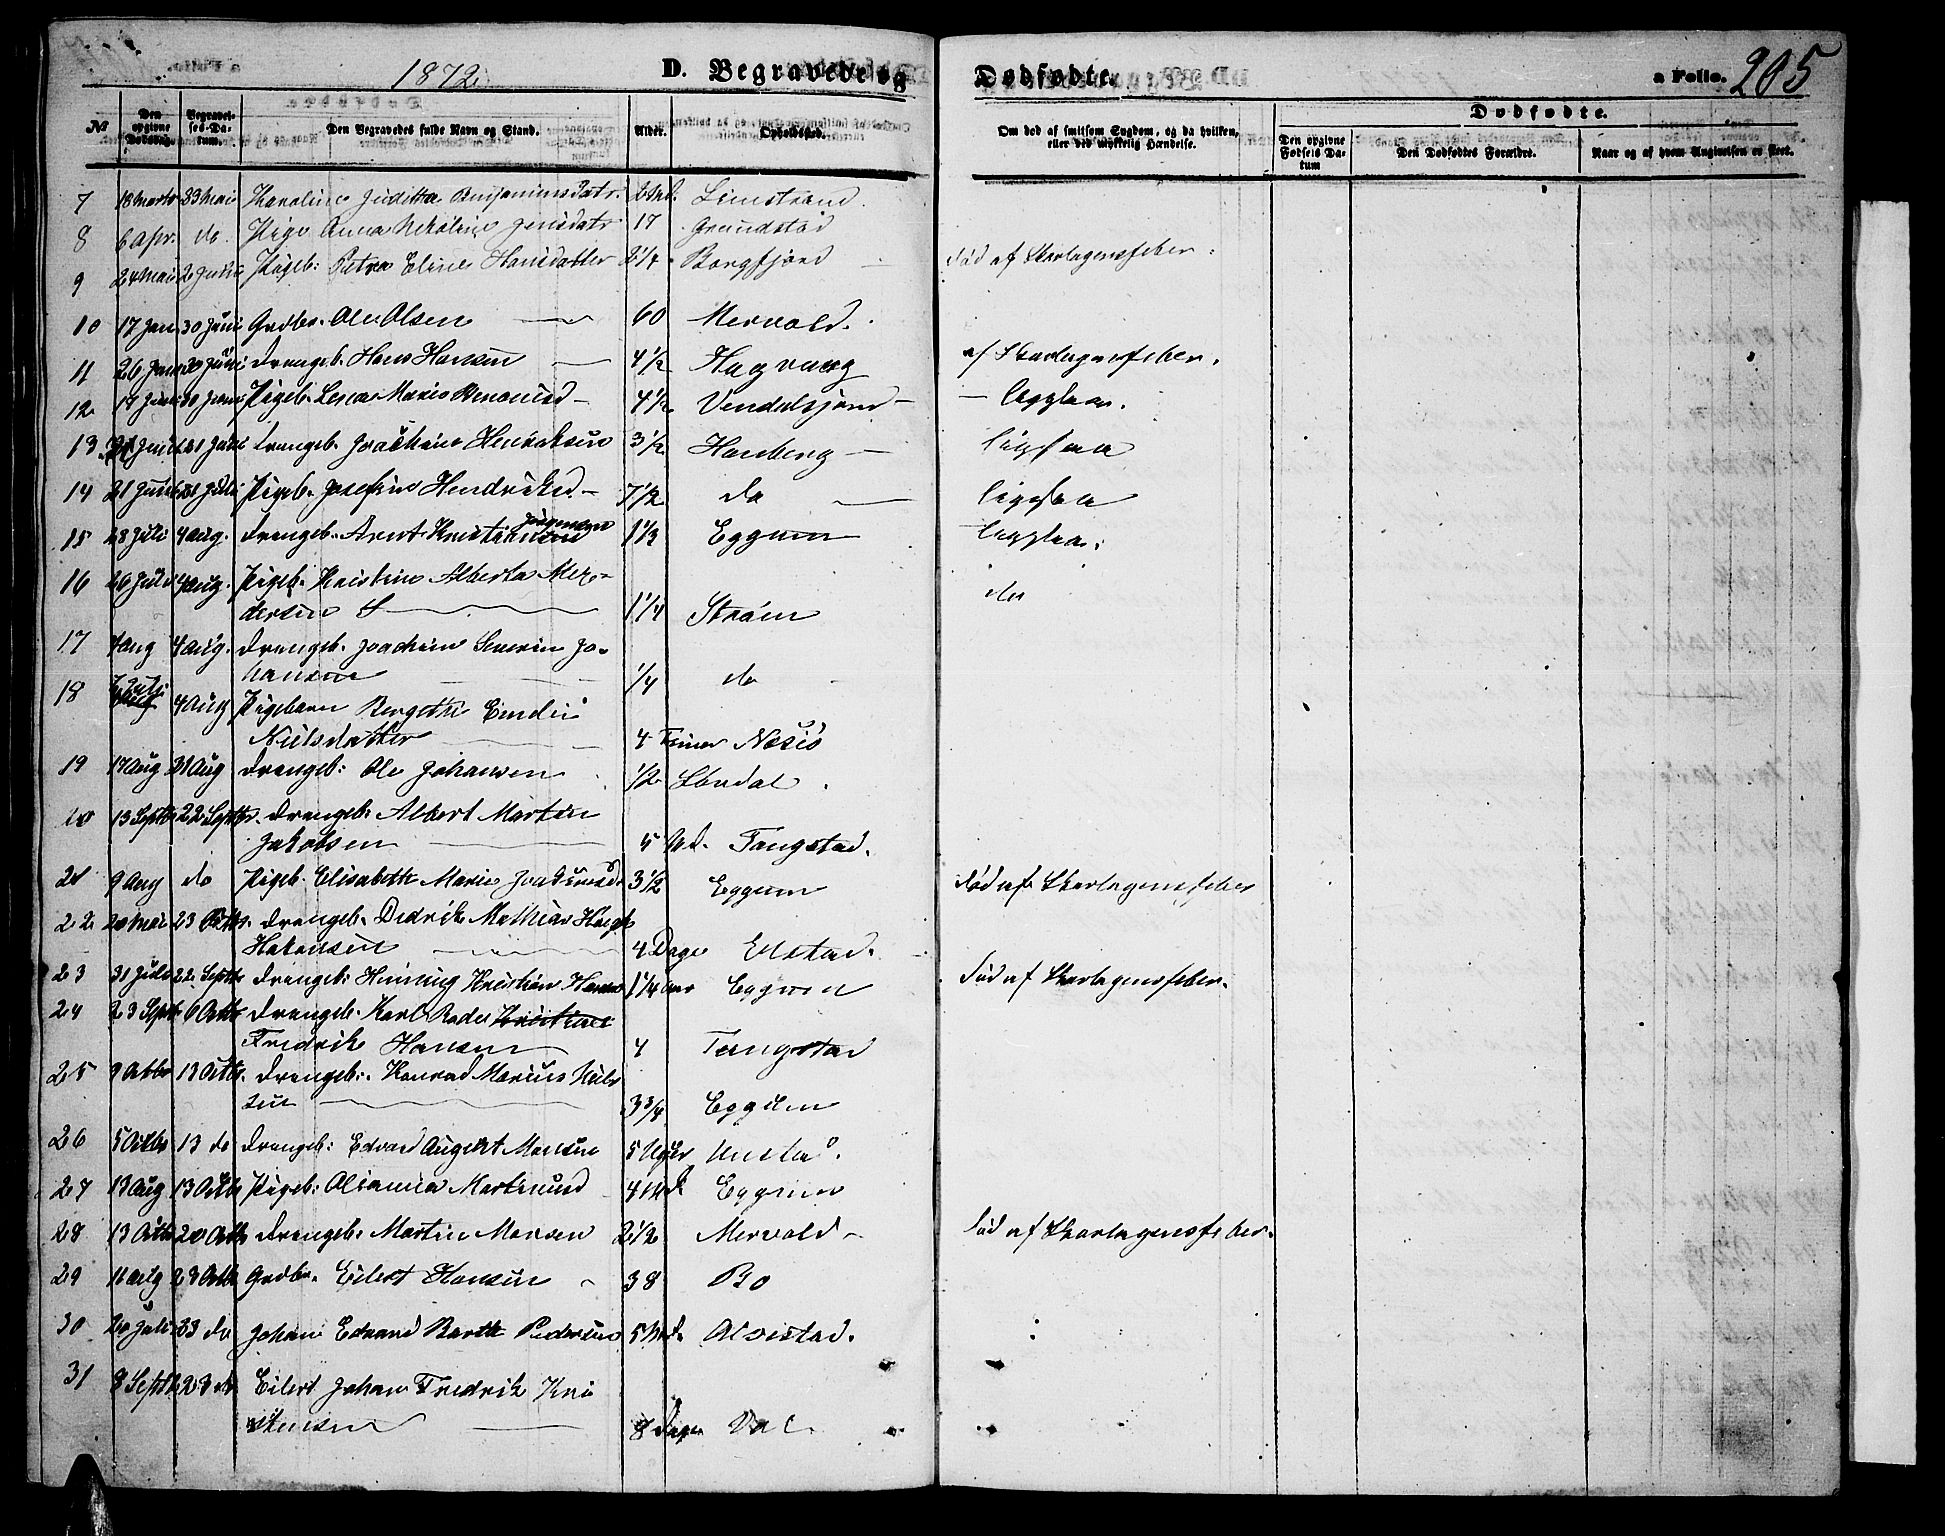 1872. D. Begravede og Dødfødte. a Folio. 205
№ Den opgivne Dødsdag. Begravelses-Datum. Den Begravedes fulde Navn og Stand. Alder. Opholdssted. Om død af smitsom Sygdom, og da hvilken, eller ved ulykkelig Hændelse. Dødfødte.
Den opgivne Fødsels Datum Den Dødfødtes Forældre. Naar og af hvem Angivelsen er skeet.
7 18 Marts 23 Mai Karoline Juditha Benjaminsdatr. 2 Md. Limstrand.
8 6 Apr. do. Pige Anna Nikoline Jensdatr 17 Grundstad
9 24 Mai 2 Juni Pigeb: Petra Eline Hansdatter 2 1/4 Borgfjord Død af Skarlagensfeber.
10 17 Jan 30 Juni Grdbr. Ole Olsen 60 Mervold.
11 26 Juni 30 Juni Drengeb. Hans Hansen 4 1/2 Hagvaag af Skarlagensfeber.
12 17 Juni 30 Juni Pigeb. Marie 4 1/2 Vendalsjord ligesaa.
13 Juni 21 Juli Drengeb. Joachim Henriksen 3 1/2 Hauberg ligesaa
14 21 Juni 21 Juli Pigeb. Josefine Hendriksd 7 1/2 do ligesaa
15 28 Juli 4 Aug. Drengeb. Arnt Kristiansen Jørgensen 1 1/3 Eggum ligesaa.
16 26 Juli 4 Aug. Pigeb. Kristine Alberta
dersen 1 1/4 Strøm do
17 4 Aug 4 Aug. Drengeb. Joachim Severin Jo-
hansen 1/4 do
18 Juli 4 Aug Pigebarn Bergethe
Nielsdatter 4 Timer Næsiø
19 17 Aug 31 Aug Drengeb: Ole Johansen 1/2
20 13 Septbr 22 Septbr. Drengeb. Albert Martin
Jakobsen 5 Md. Tangstad.
21 9 Aug do Pigeb. Elisabeth Marie 3 1/2 Eggum Død af Skarlagensfeber
22 20 Mai 23 Drengeb. Didrik Mathias
Hakonsen 4 Dage Elstad.
23 31 Juli 22 Septbr Drengeb: Henning Kristian Hansen 1 1/4 Aar Eggum Død af Skarlagensfeber.
24 23 Septbr 6 Octbr Drengeb. Karl Kristian
Fredrik Hansen 4 Tangstad
25 9 Octbr 13 Octbr. Drengeb. Konrad Marius Niel
sen 3 3/4 Eggum
26 5 Octbr 13 do Drengeb: Edvard August Monsen 5 Uger Unstad.
27 13 Aug 13 Octbr Pigeb: 4 Md. Eggum
28 13 Octbr 20 Octbr Drengeb. Martin Monsen 2 1/2 Mervold Død af Skarlagensfeber.
29 11 Aug 23 Octbr Grdbr. Eilert Hansen 38 Bø
30 20 Juli 23 do Johan Edvard Barth Pedersen 5 Md. Alstad.
31 8 Septbr 23 do Eilert Johan Fredrik Kri
stensen 8 Dage Val